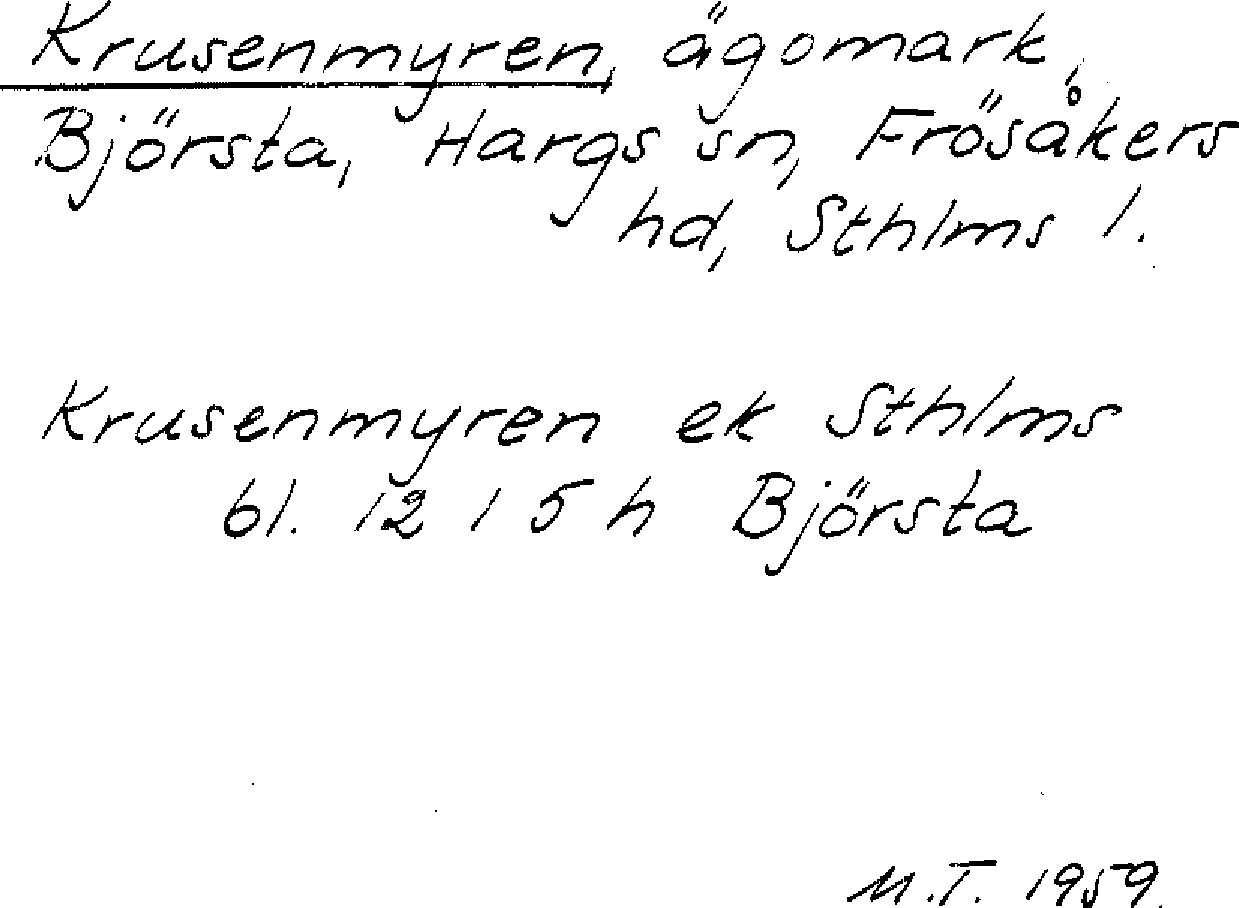 Krusenmyren, ägomark,
Björsta, Hargs sn, Frösåkers
hd, Sthlms l.
Krusenmyren ek Sthlms
bl. 12 I 5 h Björsta
M.T. 1959.